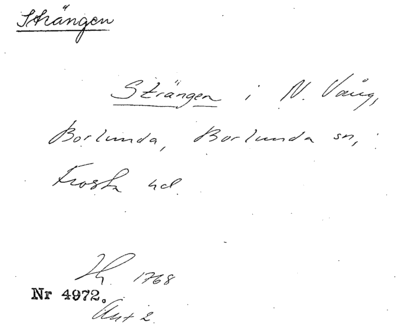 Strängen
Strängen i N. Vång,
Borlunda, Borlunda sn,
Frosta hd.
1768
Nr 4972.
Akt 2